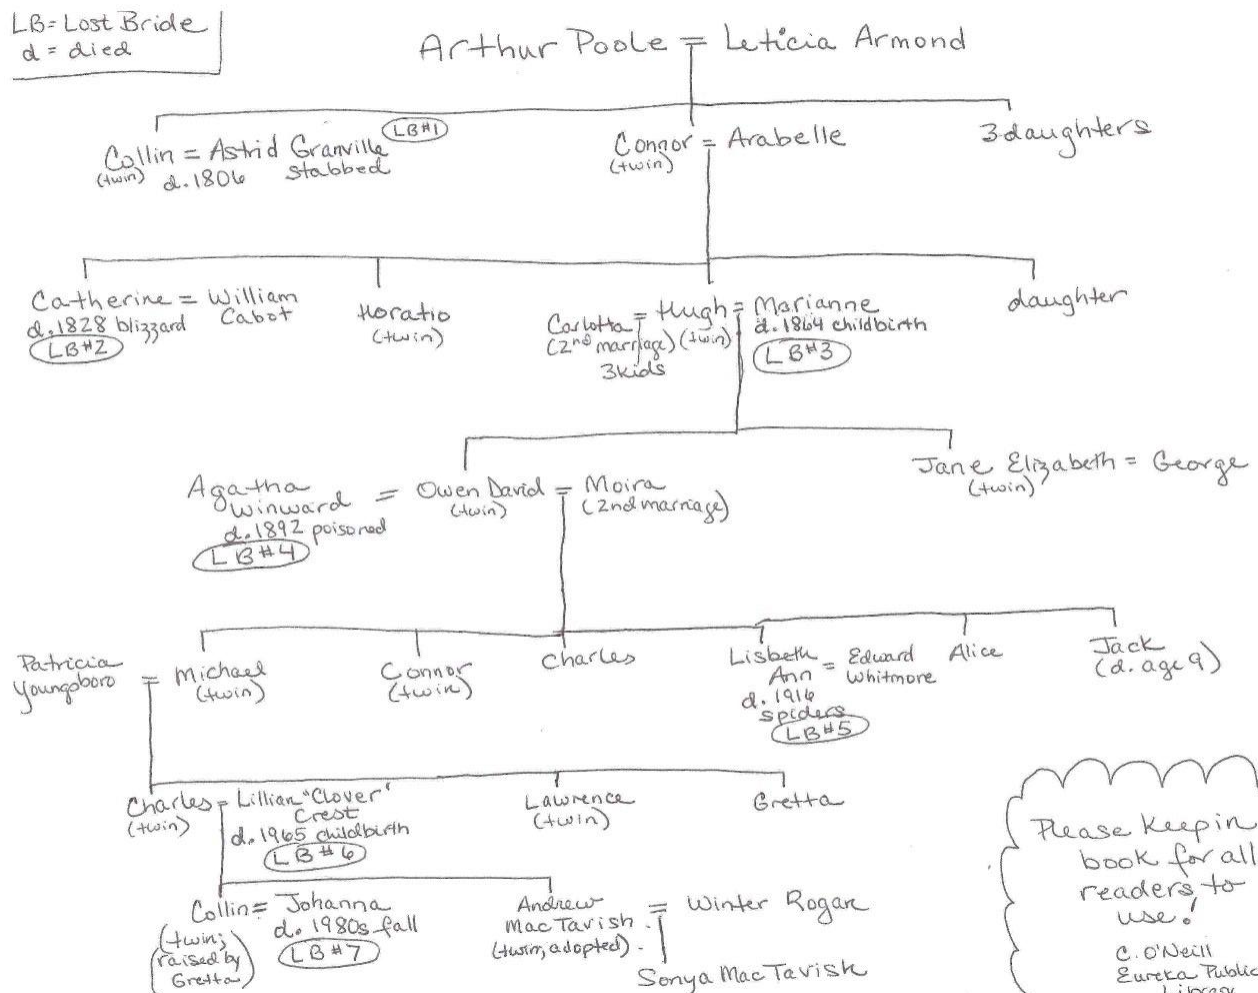 LB = Lost Bride
d = died
Arthur Poole = Leticia Armond
Collin = Astrid Granville LB#1
(twin) d. 1806 stabbed
Connor = Arabelle
(twin)
3 daughters
Catherine = William
Cabot
d. 1828 blizzard
LB#2
Horatio
(twin)
Carlotta = Hugh = Marianne
(2nd marriage) (twin) d. 1864 childbirth
3 kids
LB#3
daughter
Agatha
Winward = Owen David = Moira
(twin) (2nd marriage)
d. 1892 poisoned
LB#4
Jane Elizabeth = George
(twin)
Patricia
Youngsboro = Michael
(twin)
Connor
(twin)
Charles
Lisbeth
Ann = Edward
Whitmore
d. 1916
spiders
LB#5
Alice
Jack
(d. age 9)
Charles = Lillian "Clover"
(twin) Crest
d. 1965 childbirth
LB#6
Lawrence
(twin)
Gretta
Collin = Johanna
(twin; d. 1980s fall
raised by LB#7
Gretta)
Andrew
MacTavish = Winter Rogan
(twin, adopted)
Sonya MacTavish
Please keep in
book for all
readers to
use!
C. O'Neill
Eureka Public
Library